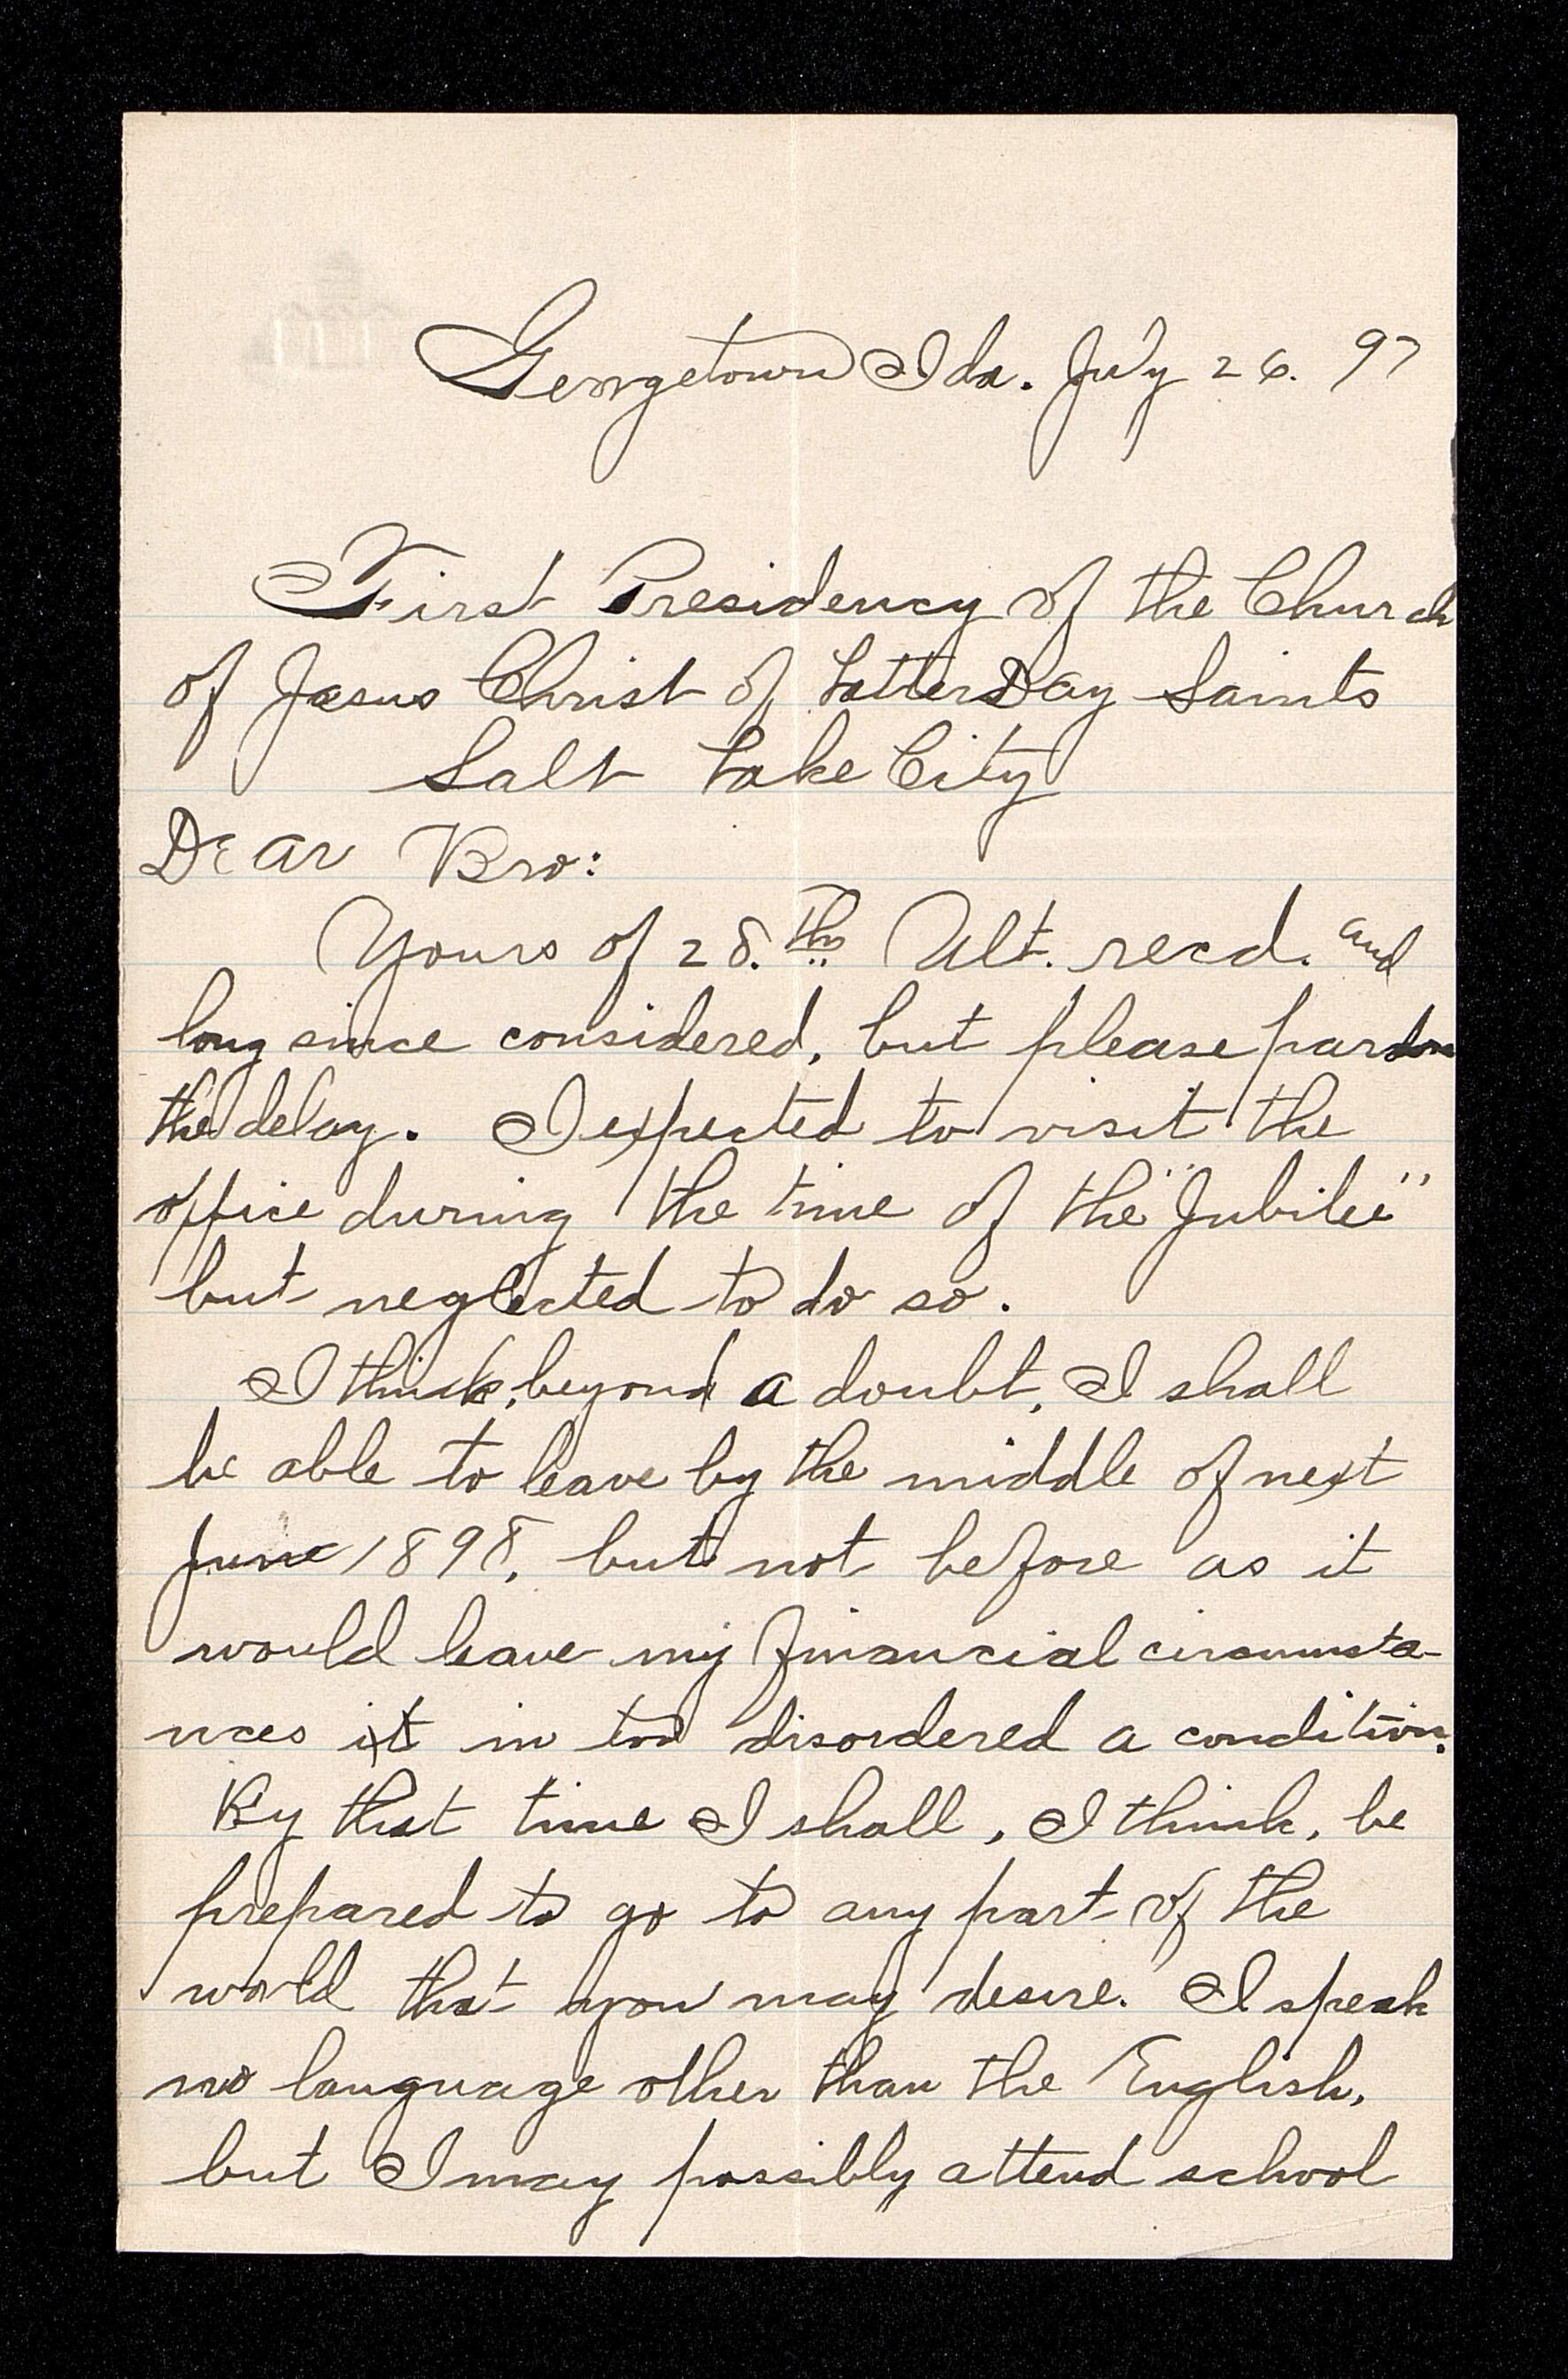 Georgetown Ida. July 26. 97
First Presidency of the Church
of Jesus Christ of Latter Day Saints
Salt Lake City
Dear Bro:
Yours of 28.th Ult. recd. and
long since considered, but please pardon
the delay. I expected to visit the
office during the time of the "Jubilee"
but neglected to do so.
I think, beyond a doubt, I shall
be able to leave by the middle of next
June 1898, but not before as it
would leave my financial circumsta-
nces it in too disordered a condition.
By that time I shall, I think, be
prepared to go to any part of the
world that you may desire. I speak
no language other than the English,
but I may possibly attend school